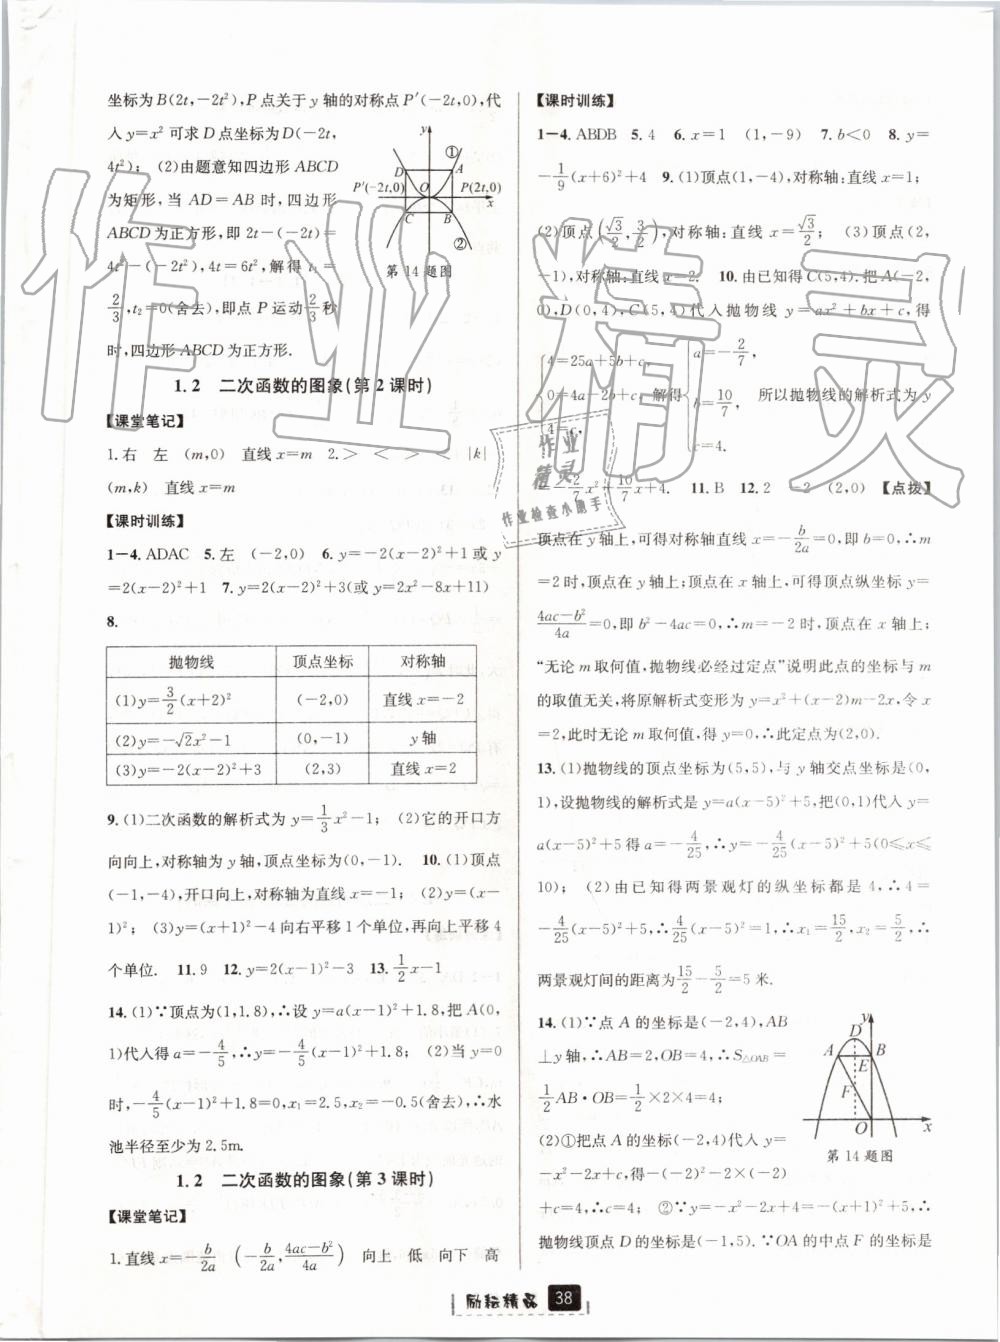 坐标为B(2t,-2t²),P点关于y轴的对称点P′(-2t,0),代
入y=x²可求D点坐标为D(-2t,
4t²); (2)由题意知四边形ABCD
为矩形,当AD=AB时,四边形
ABCD为正方形,即2t-(-2t)=
4t²-(-2t²),4t=6t²,解得t₁=
2/3,t₂=0(舍去),即点P运动2/3秒
时,四边形ABCD为正方形.
y
①
D
A
P′(-2t,0)
O
P(2t,0)
x
C
B
②
第14题图
1.2 二次函数的图象(第2课时)
【课堂笔记】
1.右 左 (m,0) 直线x=m 2.> < > < |k|
(m,k) 直线x=m
【课时训练】
1-4.ADAC 5.左 (-2,0) 6.y=-2(x-2)²+1或y
=2(x-2)²+1 7.y=2(x-2)²+3(或y=2x²-8x+11)
8.
抛物线 顶点坐标 对称轴
(1)y=3/2(x+2)² (-2,0) 直线x=-2
(2)y=-√2x²-1 (0,-1) y轴
(3)y=-2(x-2)²+3 (2,3) 直线x=2
9.(1)二次函数的解析式为y=1/3x²-1; (2)它的开口方
向向上,对称轴为y轴,顶点坐标为(0,-1). 10.(1)顶点
(-1,-4),开口向上,对称轴为直线x=-1; (2)y=(x-
1)²; (3)y=(x+1)²-4向右平移1个单位,再向上平移4
个单位. 11.9 12.y=2(x-1)²-3 13.1/2x-1
14.(1)∵顶点为(1,1.8),∴设y=a(x-1)²+1.8,把A(0,
1)代入得a=-4/5,∴y=-4/5(x-1)²+1.8; (2)当y=0
时,-4/5(x-1)²+1.8=0,x₁=2.5,x₂=-0.5(舍去),∴水
池半径至少为2.5m.
1.2 二次函数的图象(第3课时)
【课堂笔记】
1.直线x=-b/2a (-b/2a,(4ac-b²)/4a) 向上 低 向下 高
【课时训练】
1-4.ABDB 5.4 6.x=1 (1,-9) 7.b<0 8.y=
-1/9(x+6)²+4 9.(1)顶点(1,-4),对称轴:直线x=1;
(2)顶点(√3/2,3/2),对称轴:直线x=√3/2; (3)顶点(2,
-1),对称轴:直线x=2. 10.由已知得C(5,4).把A(-2,
0),D(0,4),C(5,4)代入抛物线y=ax²+bx+c,得
{4=25a+5b+c, 0=4a-2b+c, 4=c, 解得{a=-2/7, b=10/7, c=4. 所以抛物线的解析式为y
=-2/7x²+10/7x+4. 11.B 12.2 -2 (2,0) 【点拨】
顶点在y轴上,可得对称轴直线x=-b/2a=0,即b=0,∴m
=2时,顶点在y轴上;顶点在x轴上,可得顶点纵坐标y=
(4ac-b²)/4a=0,即b²-4ac=0,∴m=-2时,顶点在x轴上;
“无论m取何值,抛物线必经过定点”说明此点的坐标与m
的取值无关,将原解析式变形为y=x²+(x-2)m-2x,令x
=2,此时无论m取何值,得y=0,∴此定点为(2,0).
13.(1)抛物线的顶点坐标为(5,5),与y轴交点坐标是(0,
1),设抛物线的解析式是y=a(x-5)²+5,把(0,1)代入y=
a(x-5)²+5得a=-4/25,∴y=-4/25(x-5)²+5(0≤x≤
10); (2)由已知得两景观灯的纵坐标都是4,∴4=
-4/25(x-5)²+5,∴4/25(x-5)²=1,∴x₁=15/2,x₂=5/2,∴
两景观灯间的距离为15/2-5/2=5米.
14.(1)∵点A的坐标是(-2,4),AB
⊥y轴,∴AB=2,OB=4,∴S△OAB=
1/2AB·OB=1/2×2×4=4;
(2)①把点A的坐标(-2,4)代入y=
-x²-2x+c,得-(-2)²-2×(-2)
+c=4,∴c=4; ②∵y=-x²-2x+4=-(x+1)²+5,∴
抛物线顶点D的坐标是(-1,5).∵OA的中点F的坐标是
y
D
A
E
B
F
O
x
第14题图
作业精灵
作业
精灵
作业检查小助手
励耘精品 38